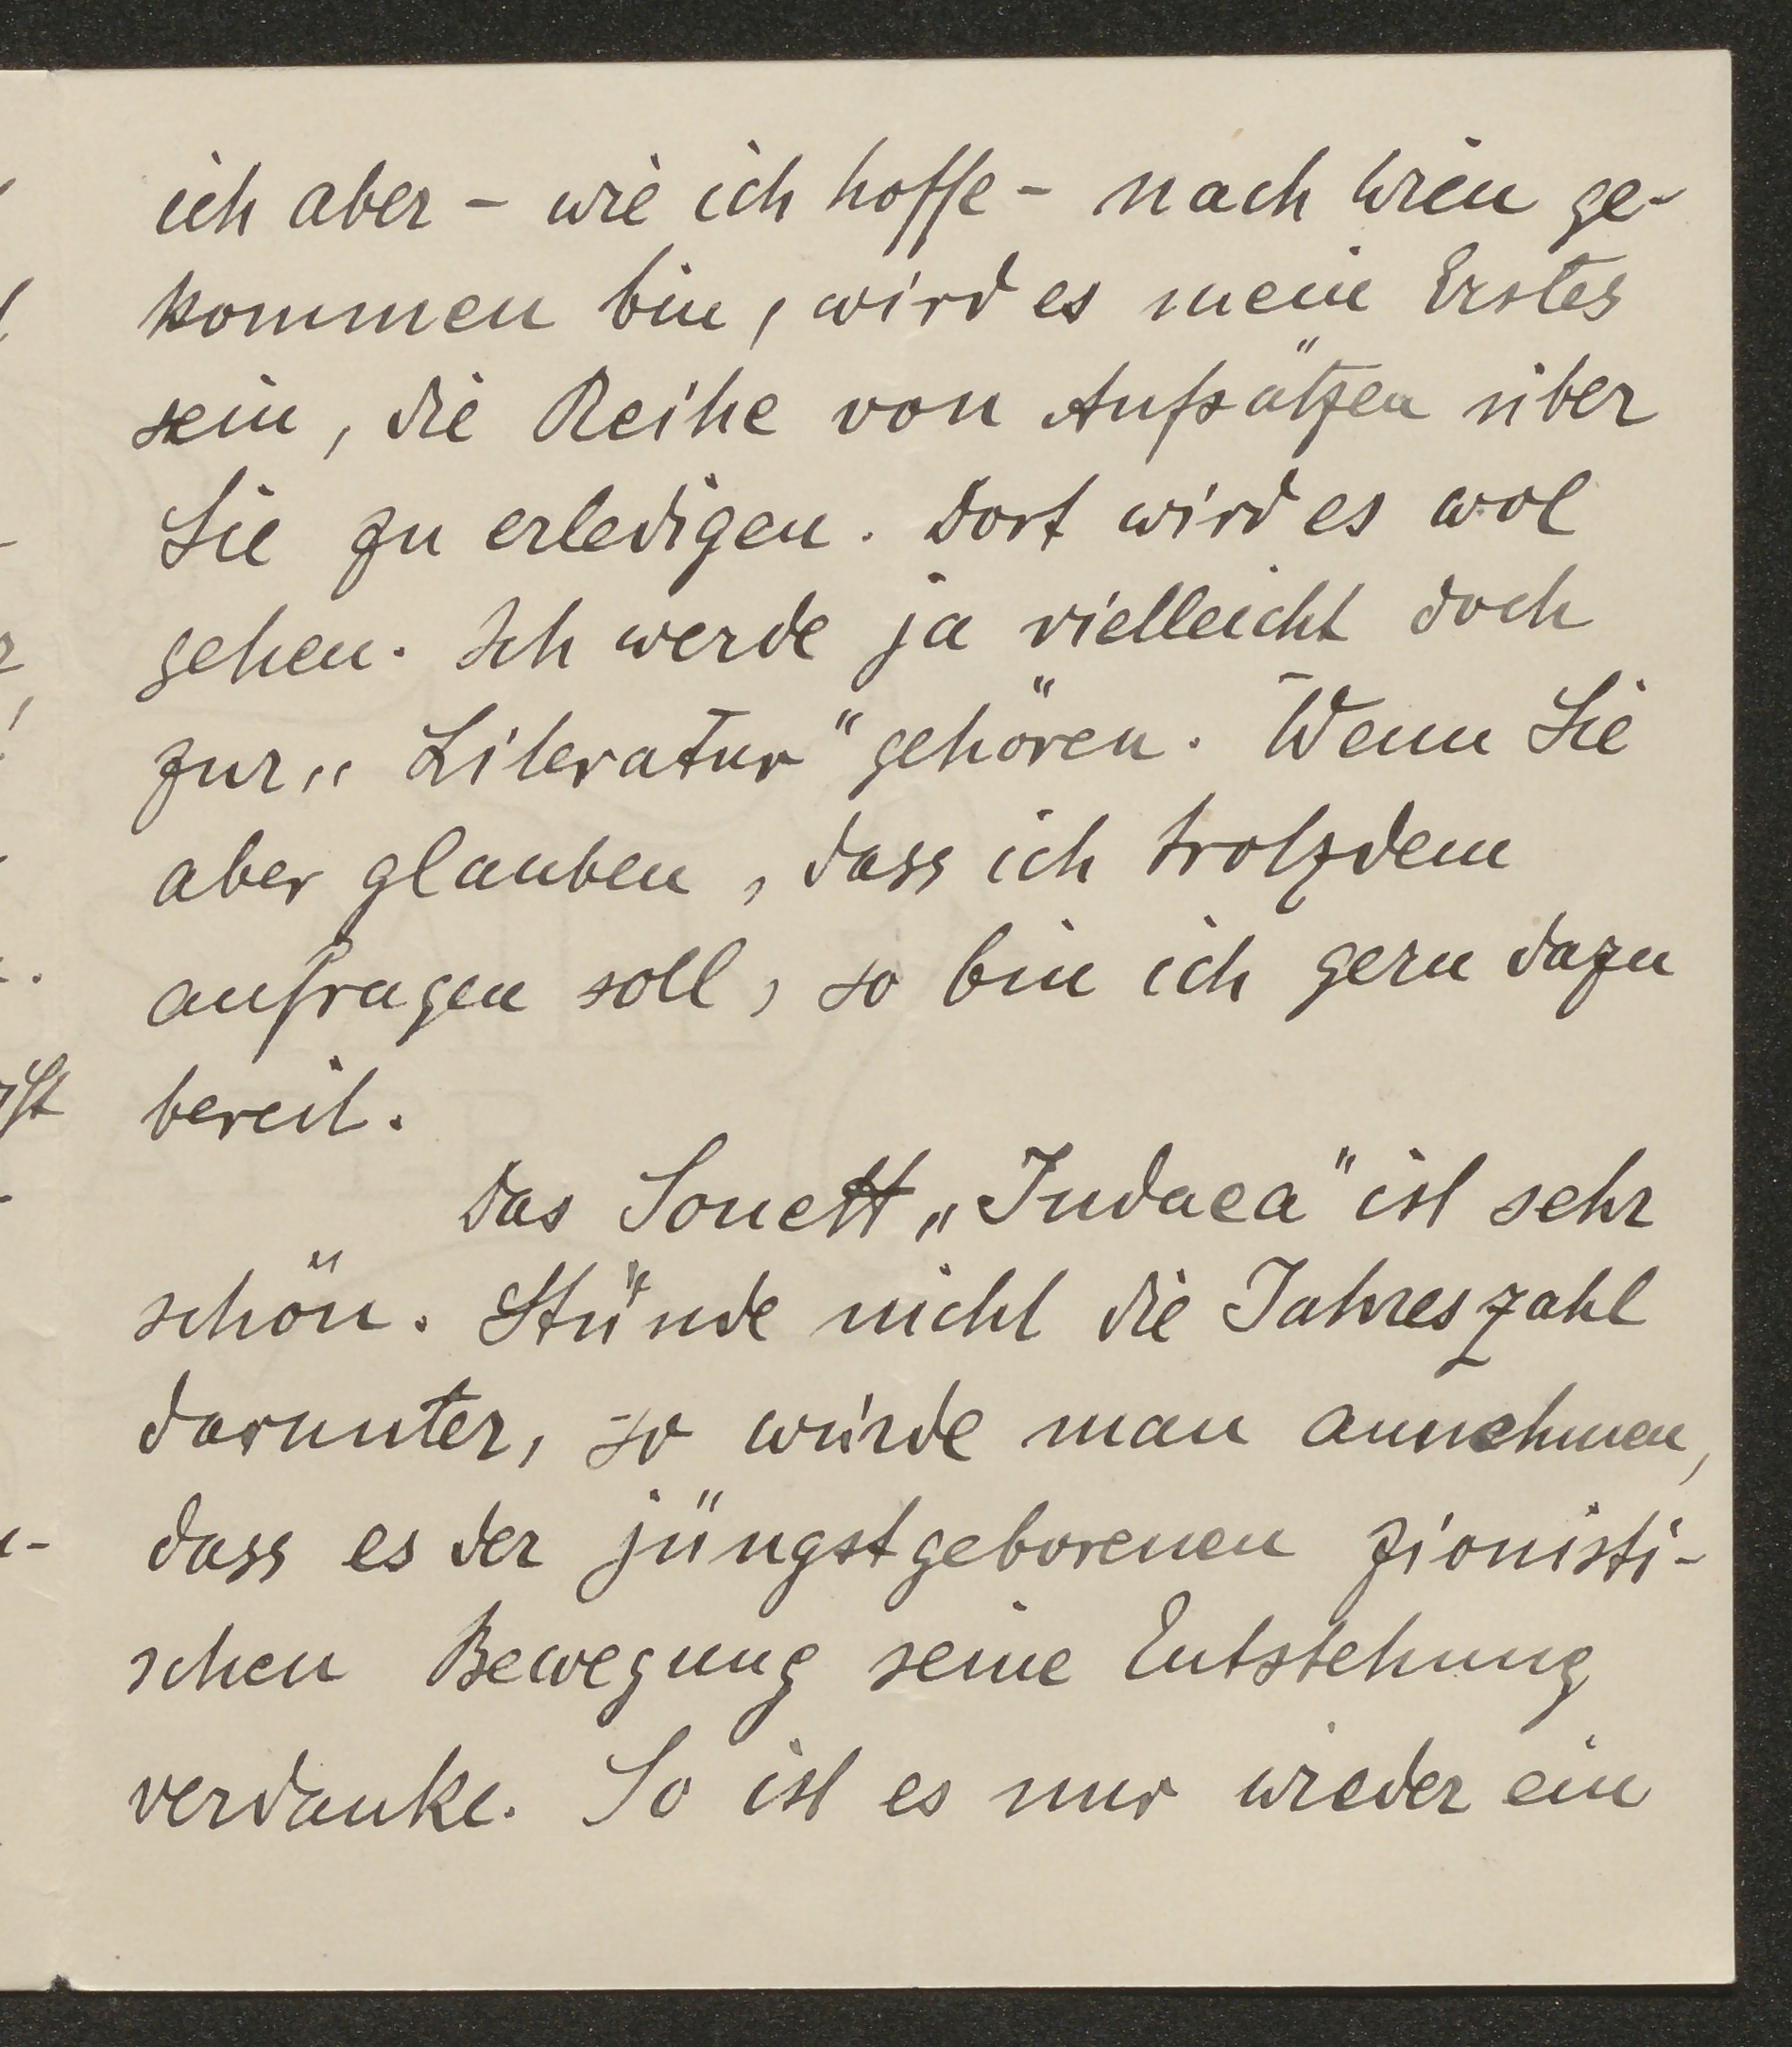 ich aber – wie ich hoffe – nach Wien ge-
kommen bin, wird es mein Erstes
sein, die Reihe von Aufsätzen über
Sie zu erledigen. Dort wird es wol
gehen. Ich werde ja vielleicht doch
zur „Literatur“ gehören. Wenn Sie
aber glauben, dass ich trotzdem
anfragen soll, so bin ich gern dazu
bereit.
Das Sonett „Judaea“ ist sehr
schön. Stünde nicht die Jahreszahl
darunter, so würde man annehmen,
dass es der jüngstgeborenen zionisti-
schen Bewegung seine Entstehung
verdanke. So ist es nur wieder ein